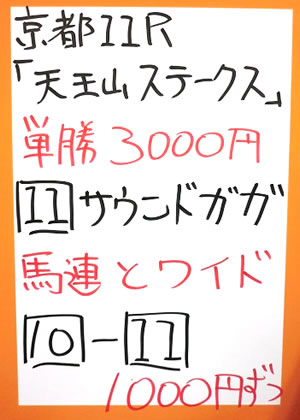 京都11R
「天王山ステークス」
単勝3000円
11サウンドガガ
馬連とワイド
10-11
1000円ずつ